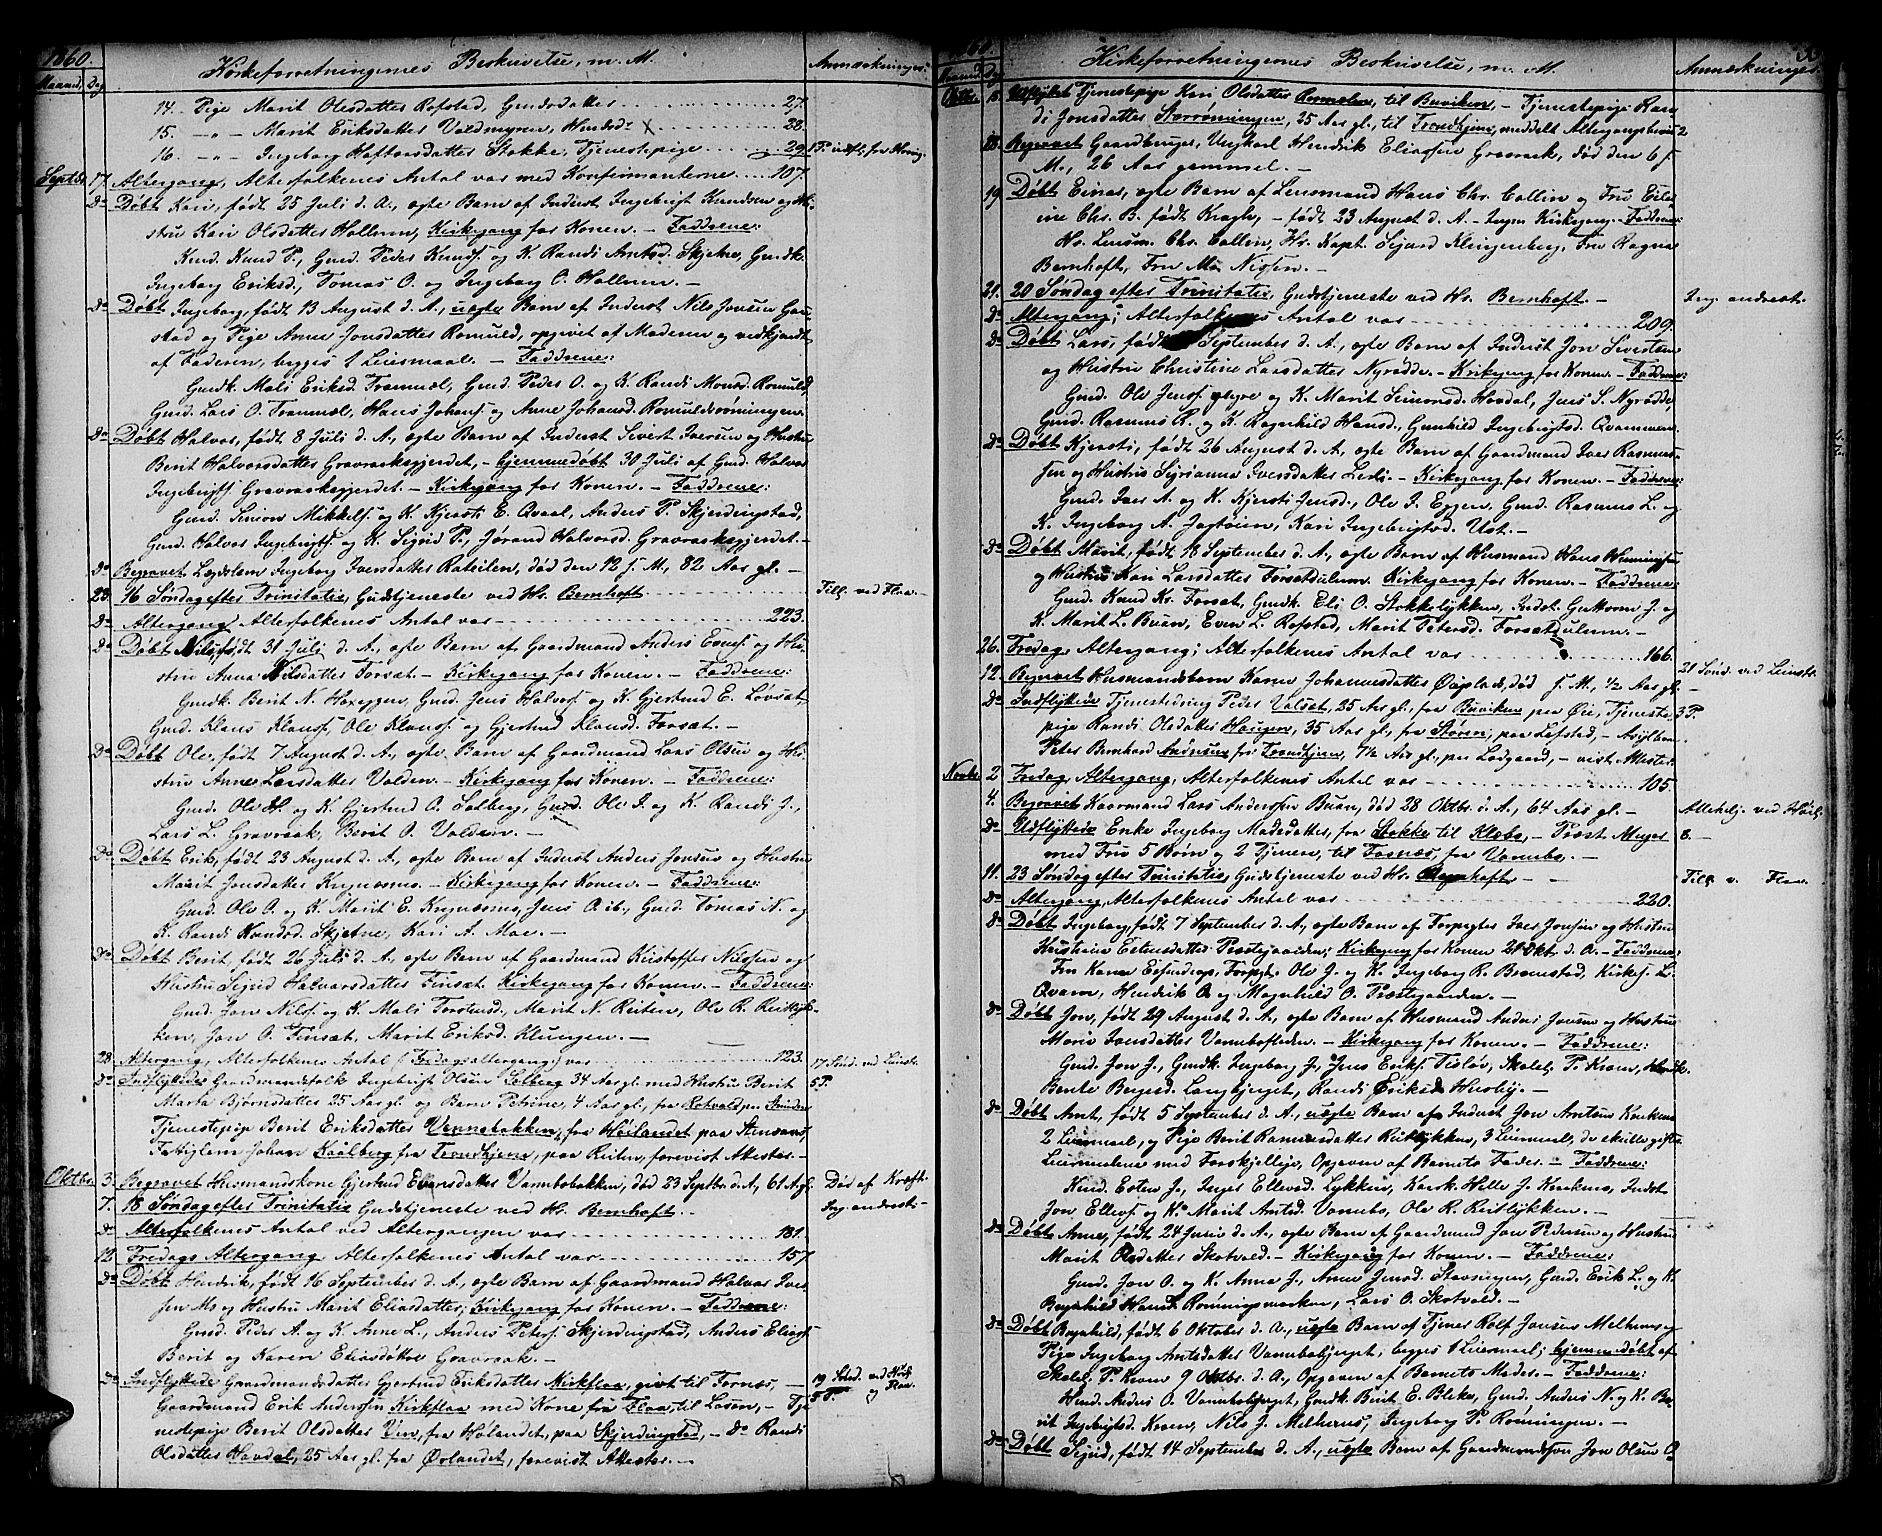 1860.
Maaned, Dag
Kirkeforretningernes Beskrivelse, m. M.
Anmærkninger.
14. Pige Marit Olsdatter Rofstad, Gmdsdatter 27.
15. -"- Marit Eriksdatter Valdmyren, Hmdsdr 28.
16. -"- Ingeborg Haftorsdatter Stokke, Tjenestepige 29.
Septbr. 17. Altergang, Alterfolkenes Antal var med Konfirmanterne 107.
do Døbt Kari, født 25 Juli d. A., ægte Barn af Inderst Ingebrigt Knudsen og Hu-
stru Kari Olsdatter Hollerin, Kirkegang for Konen. - Faddrene:
Kmd. Knud P., Gmd. Peder Knuds. og K. Randi Arntsd. Skjetne, Gmdk.
Ingeborg Eriksd., Tomas O. og Ingeborg O. Hollerin. -
do Døbt Ingeborg, født 13 August d. A., uægte Barn af Inderst Nils Jonsen
stad og Pige Anne Jonsdatter Romuld, opgivet af Moderen og vedkjendt
af Faderen, begges 1 Leiermaal. - Faddrene:
Gmdk. Mali Eriksd. Tranmæl, Gmd. Peder O. og K. Randi Monsd. Romuld,
Gmd. Lars O. Tranmæl, Hans Johans. og Anne Johansd. Romuldsrønningen.
do Døbt Halvor, født 8 Juli d. A., ægte Barn af Inderst Sivert Iversen og Hustru
Berit Halvorsdatter Gravraaksgjerdet, - hjemmedøbt 30 Juli af Gmd. Halvor
Ingebrigts. Gravraaksgjerdet. - Kirkegang for Konen. - Faddrene:
Gmd. Simon Mikkels. og K. Kjersti E. Qvaal, Anders P. Skjerdingstad,
Gmd. Halvor Ingebrigts. og K. Sigrid P., Jørand Halvorsd. Gravraaksgjerdet. -
do Begravet Lægdslem Ingeborg Iversdatter Rateilen, død den 12 f. M., 82 Aar gl. -
23. 16 Søndag efter Trinitatis, Gudstjeneste ved Hr. Bernhoft. Till. ved Flaa. -
do Altergang, Alterfolkenes Antal var 223.
do Døbt Nils, født 31 Juli d. A., ægte Barn af Gaardmand Anders Ens. og Hu-
stru Anna Nilsdatter Forsæt. - Kirkegang for Konen. - Faddrene:
Gmdk. Berit N. Hoxeggen, Gmd. Jens Halvors. og K. Gjertrud E. Løvset,
Gmd. Klaus Klauss., Ole Klauss. og Gjertrud Klausd. Forsæt. -
do Døbt Ole, født 7 August d. A., ægte Barn af Gaardmand Lars Olsen og Hu-
stru Anne Larsdatter Volden. - Kirkegang for Konen. - Faddrene:
Gmd. Ole H. og K. Gjertrud O. Solberg, Gmd. Ole J. og K. Randi J.,
Lars L. Gravraak, Berit O. Volden. -
do Døbt Erik, født 23 August d. A., ægte Barn af Inderst Anders Jonsen og Hustru
Marit Jonsdatter Krynesmo. - Kirkegang for Konen. - Faddrene:
Gmd. Ole O. og K. Marit E. Krynesmo, Jens O. ib., Gmd. Tomas N. og
K. Randi Hansd. Skjetne, Kari A. Moe. -
do Døbt Berit, født 26 Juli d. A., ægte Barn af Gaardmand Kristoffer Nilssen og
Hustru Sigrid Halvorsdatter Finsæt. Kirkegang for Konen. - Faddrene:
Gmd. Jon Nils. og K. Mali Torstensd., Marit N. Reiten, Ole R. Reitlyk-
ken, Jon O. Finsæt, Marit Eriksd. Klungen. -
28. Altergang, Alterfolkenes Antal (Fredagsaltergang) var 123. 17 Sønd. ved Leinstr.
do Indflyttede Gaardmandsfolk Ingebrigt Olsen Solberg 34 Aar gl. med Hustru Berit 5 P.
Marta Bjørnsdatter 25 Aar gl. og Barn Petrine, 4 Aar gl., fra Rotvold pr. Strinden
Tjenestepige Berit Eriksdatter Vennebakken, fra Høilandet paa Stensaas,
Fattiglem Johan Kaalberg fra Trondhjem, paa Reiten, forevist Attester. -
Oktbr. 3. Begravet Husmandskone Gjertrud Evensdatter Vannebobakken, død 23 Septbr. d. A., 61 Aar gl. Død af Kræft.
7. 18 Søndag efter Trinitatis Gudstjeneste ved Hr. Bernhoft. Ing. andrest.
do Alterfolkenes Antal ved Altergangen var 181.
12. Fredags Altergang, Alterfolkenes Antal var 157.
do Døbt Hendrik, født 16 September d. A., ægte Barn af Gaardmand Halvor Iver-
sen Mo og Hustru Marit Eliasdatter; Kirkegang for Konen. - Faddrene:
Gmd. Peder A. og K. Anne L., Anders Peters. Skjerdingstad, Anders Elias.
Berit og Karen Eliasdøttre Gravraak. -
do Indflyttede Gaardmandsdatter Gjertrud Eriksdatter Kirkflaa, givt til Fornes, - 19 Sønd. ved
Gaardmand Erik Anderssen Kirkflaa med Kone fra Flaa til Losen, - Tje- 5 P.
nestepige Berit Olsdatter Vin, fra Holandet, paa Skjerdingstad, - do Randi
Olsdatter Hovdal, 25 Aar gl. fra Ørlandet, forevist Attester. -
Kirkeforretningernes Beskrivelse, m. M.
Anmærkninger.
Oktbr. 15. Udflyttet Tjenestepige Kari Olsdatter Rommolen, til Buviken, - Tjenestepige Ran-
di Jonsdatter Storrønningen, 25 Aar gl., til Trondhjem, meddelt Altergangsbevis 2
18. Begravet Gaardbruger, Ungkarl Hendrik Eliassen Gravraak, død den 6 f.
M., 26 Aar gammel. -
19. Døbt Einar, ægte Barn af Lensmand Hans Chr. Collin og Fru Eile-
ine Chr. B. født Kragh, - født 23 August d. A. - Ingen Kirkegang. Faddrene:
Hr. Lensm. Chr. Collin, Hr. Kapt. Sigurd Klingenberg, Fru Ragna
Bernhoft, Fru Ma Nissen. -
21. 20 Søndag efter Trinitatis, Gudstjeneste ved Hr. Bernhoft. - Ing. andrest.
do Altergang; Alterfolkenes Antal var 209.
do Døbt Lars, født September d. A., ægte Barn af Inderst Jon Sivertsen
og Hustru Christine Larsdatter Nyrødde. - Kirkegang for Konen. - Faddrene:
Gmd. Ole Jens. og K. Marit Simonsd. Hovdal, Jens S. Nyrødde,
Gmd. Rasmus R. og K. Ragnhild Hansd., Gunhild Ingebrigtsd. Qvammen.
do Døbt Kjersti, født 26 August d. A., ægte Barn af Gaardmand Iver Rasmus-
sen og Hustru Sirianna Iversdatter Lerli. - Kirkegang for Konen. - Faddrene:
Gmd. Iver A. og K. Kjersti Jensd., Ole I. Eggen, Gmd. Rasmus L. og
K. Ingeborg A. Jagtøien, Kari Ingebrigtsd. Ust. -
do Døbt Marit, født 18 September d. A., ægte Barn af Husmand Hans Henningsen
og Hustru Kari Larsdatter Forsætdulum. Kirkegang for Konen. - Faddrene:
Gmd. Knud Kr. Forsæt, Gmdk. Eli O. Stokkelykken, Indst. Guttorm J. og
K. Marit L. Buan, Even L. Rofstad, Marit Petersd. Forsætdulum. -
26. Fredag, Altergang; Alterfolkenes Antal var 166.
12. Begravet Husmandsbarn Karen Johannesdatter Øieplads, død f. M., 1/2 Aar gl. 21 Sønd. ved Leinstr.
do Indflyttede Tjenestedreng Peder Valsæt, 25 Aar gl., fra Buviken paa Øie, Tjeneste- 3 P.
pige Randi Olsdatter Haugen, 35 Aar gl., fra Støren, paa Lefstad, - Asylbarn
Peter Bernhard Andersen fra Trondhjem, 7 1/2 Aar gl., paa Ladgaard, - vist Attester.
Novbr. 2. Fredag, Altergang, Alterfolkenes Antal var 105.
4. Begravet Kaarmand Lars Anderssen Buan, død 28 Oktbr. d. A., 64 Aar gl. - Allehelg. ved Høil.
do Udflyttede Enke Ingeborg Madsdatter, fra Stokke til Klæbo, - Præst Muger 8. -
med Fru 5 Børn og 2 Tjenere, til Fosnæs, fra Vannebo. -
11. 23 Søndag efter Trinitatis, Gudstjeneste ved Hr. Bernhoft - Till. v. Flaa.
do Altergang, Alterfolkenes Antal var 220.
do Døbt Ingeborg, født 7 September d. A., ægte Barn af Forpagter Iver Jonsen og Hustru
Kristine Estensdatter Præstegaarden; Kirkegang for Konen 21 Okt. d. A. - Faddrene:
Fru Karen Eisindrops, Forpgt. Ole J. og K. Ingeborg R. Bromstad, Kirkes. L.
Qvam, Hendrik O. og Magnhild O. Præstegaarden. -
do Døbt Jon, født 29 August d. A., ægte Barn af Husmand Anders Jonsen og Hustru
Marie Jonsdatter Vannebosteden. - Kirkegang for Konen. - Faddrene:
Gmd. Jon J., Gmdk. Ingeborg J., Jens Eriks. Tisløv, Skolel. P. Kroen,
Bente Bergsd. Langbjørget, Randi Eriksd. Husby. -
do Døbt Arnt, født 5 September d. A., uægte Barn af Inderst Jon Arntsen Kraakmo
2 Leiermaal, og Pige Berit Rasmusdatter Reitlykken, 3 Leiermaal, de skulle gifte
Leiermalene med Forskjellige, Opgaven af Barnets Fader. - Faddrene:
Kmd. Esten J., Inger Ellevsd. Lykken, Kaark. Helle J. Kraakmo, Indst.
Jon Ellevs. og Ko Marit Arntsd. Vannebo, Ole R. Reitlykken. -
do Døbt Anne, født 24 Juni d. A., ægte Barn af Gaardmand Jon Pedersen og Hustru
Marit Olsdatter Skotvold. - Kirkegang for Konen. - Faddrene:
Gmd. Jon O. og K. Anna J., Anne Jensd. Stavningen, Gmd. Erik L. og K.
Ragnhild Hansd. Rønningsmarken, Lars O. Skotvold. -
do Døbt Ragnhild, født 6 Oktober d. A., uægte Barn af Tjener Rolf Jonsen Melhus og
Pige Ingeborg Arntsdatter Vannebobjørget; begges 1 Leiermaal; hjemmedøbt af
Skolel. P. Kroen 9 Oktbr. d. A., Opgaven af Barnets Moder. - Faddrene:
Hmd. Anders O. Vannebobjørget, Gmdk. Berit E. Bleke, Gmd. Anders N. og K. Be-
rit Ingebrigtsd. Kroen, Nils J. Melhus, Ingeborg P. Rønningen. -
do Døbt Sigrid, født 14 September d. A., uægte Barn af Gaardmandssøn Jon Olsen O